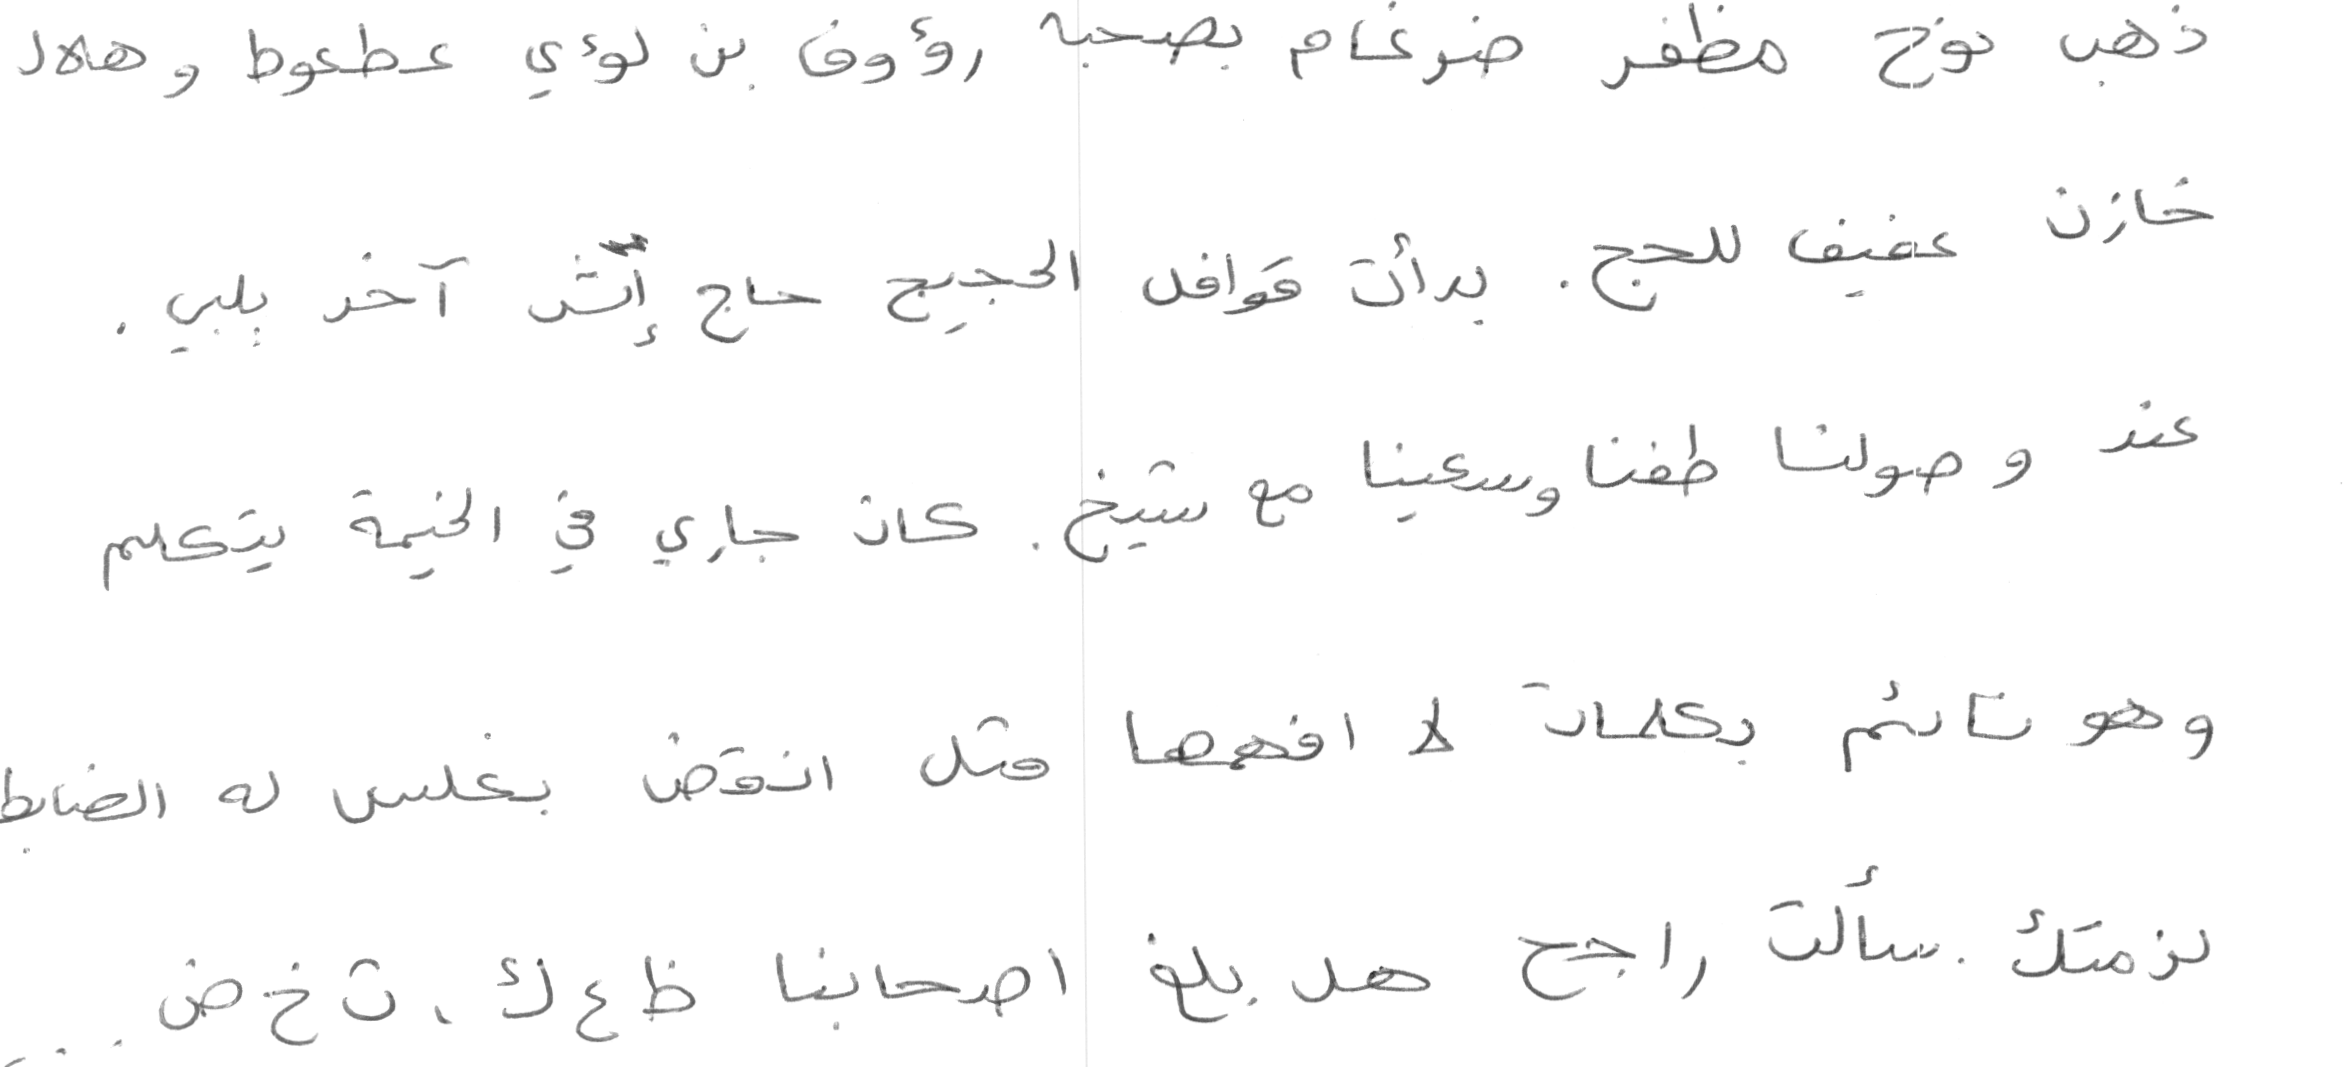 ذهب نوح مظفر ضرغام بصحبة رؤوف بن لؤي عطعوط وهلال
خازن عفيف للحج. بدأت قوافل الحجيج حاج إثر آخر يلبي.
عند وصولنا طفنا وسعينا مع شيخ. كان جاري في الخيمة يتكلم
وهو نائم بكلمات لا افهمها مثل انقض بغلس له الضابط
لزمتك. سألت راجح هل بلغ اصحابنا ظ ع ك، ث خ ض ...